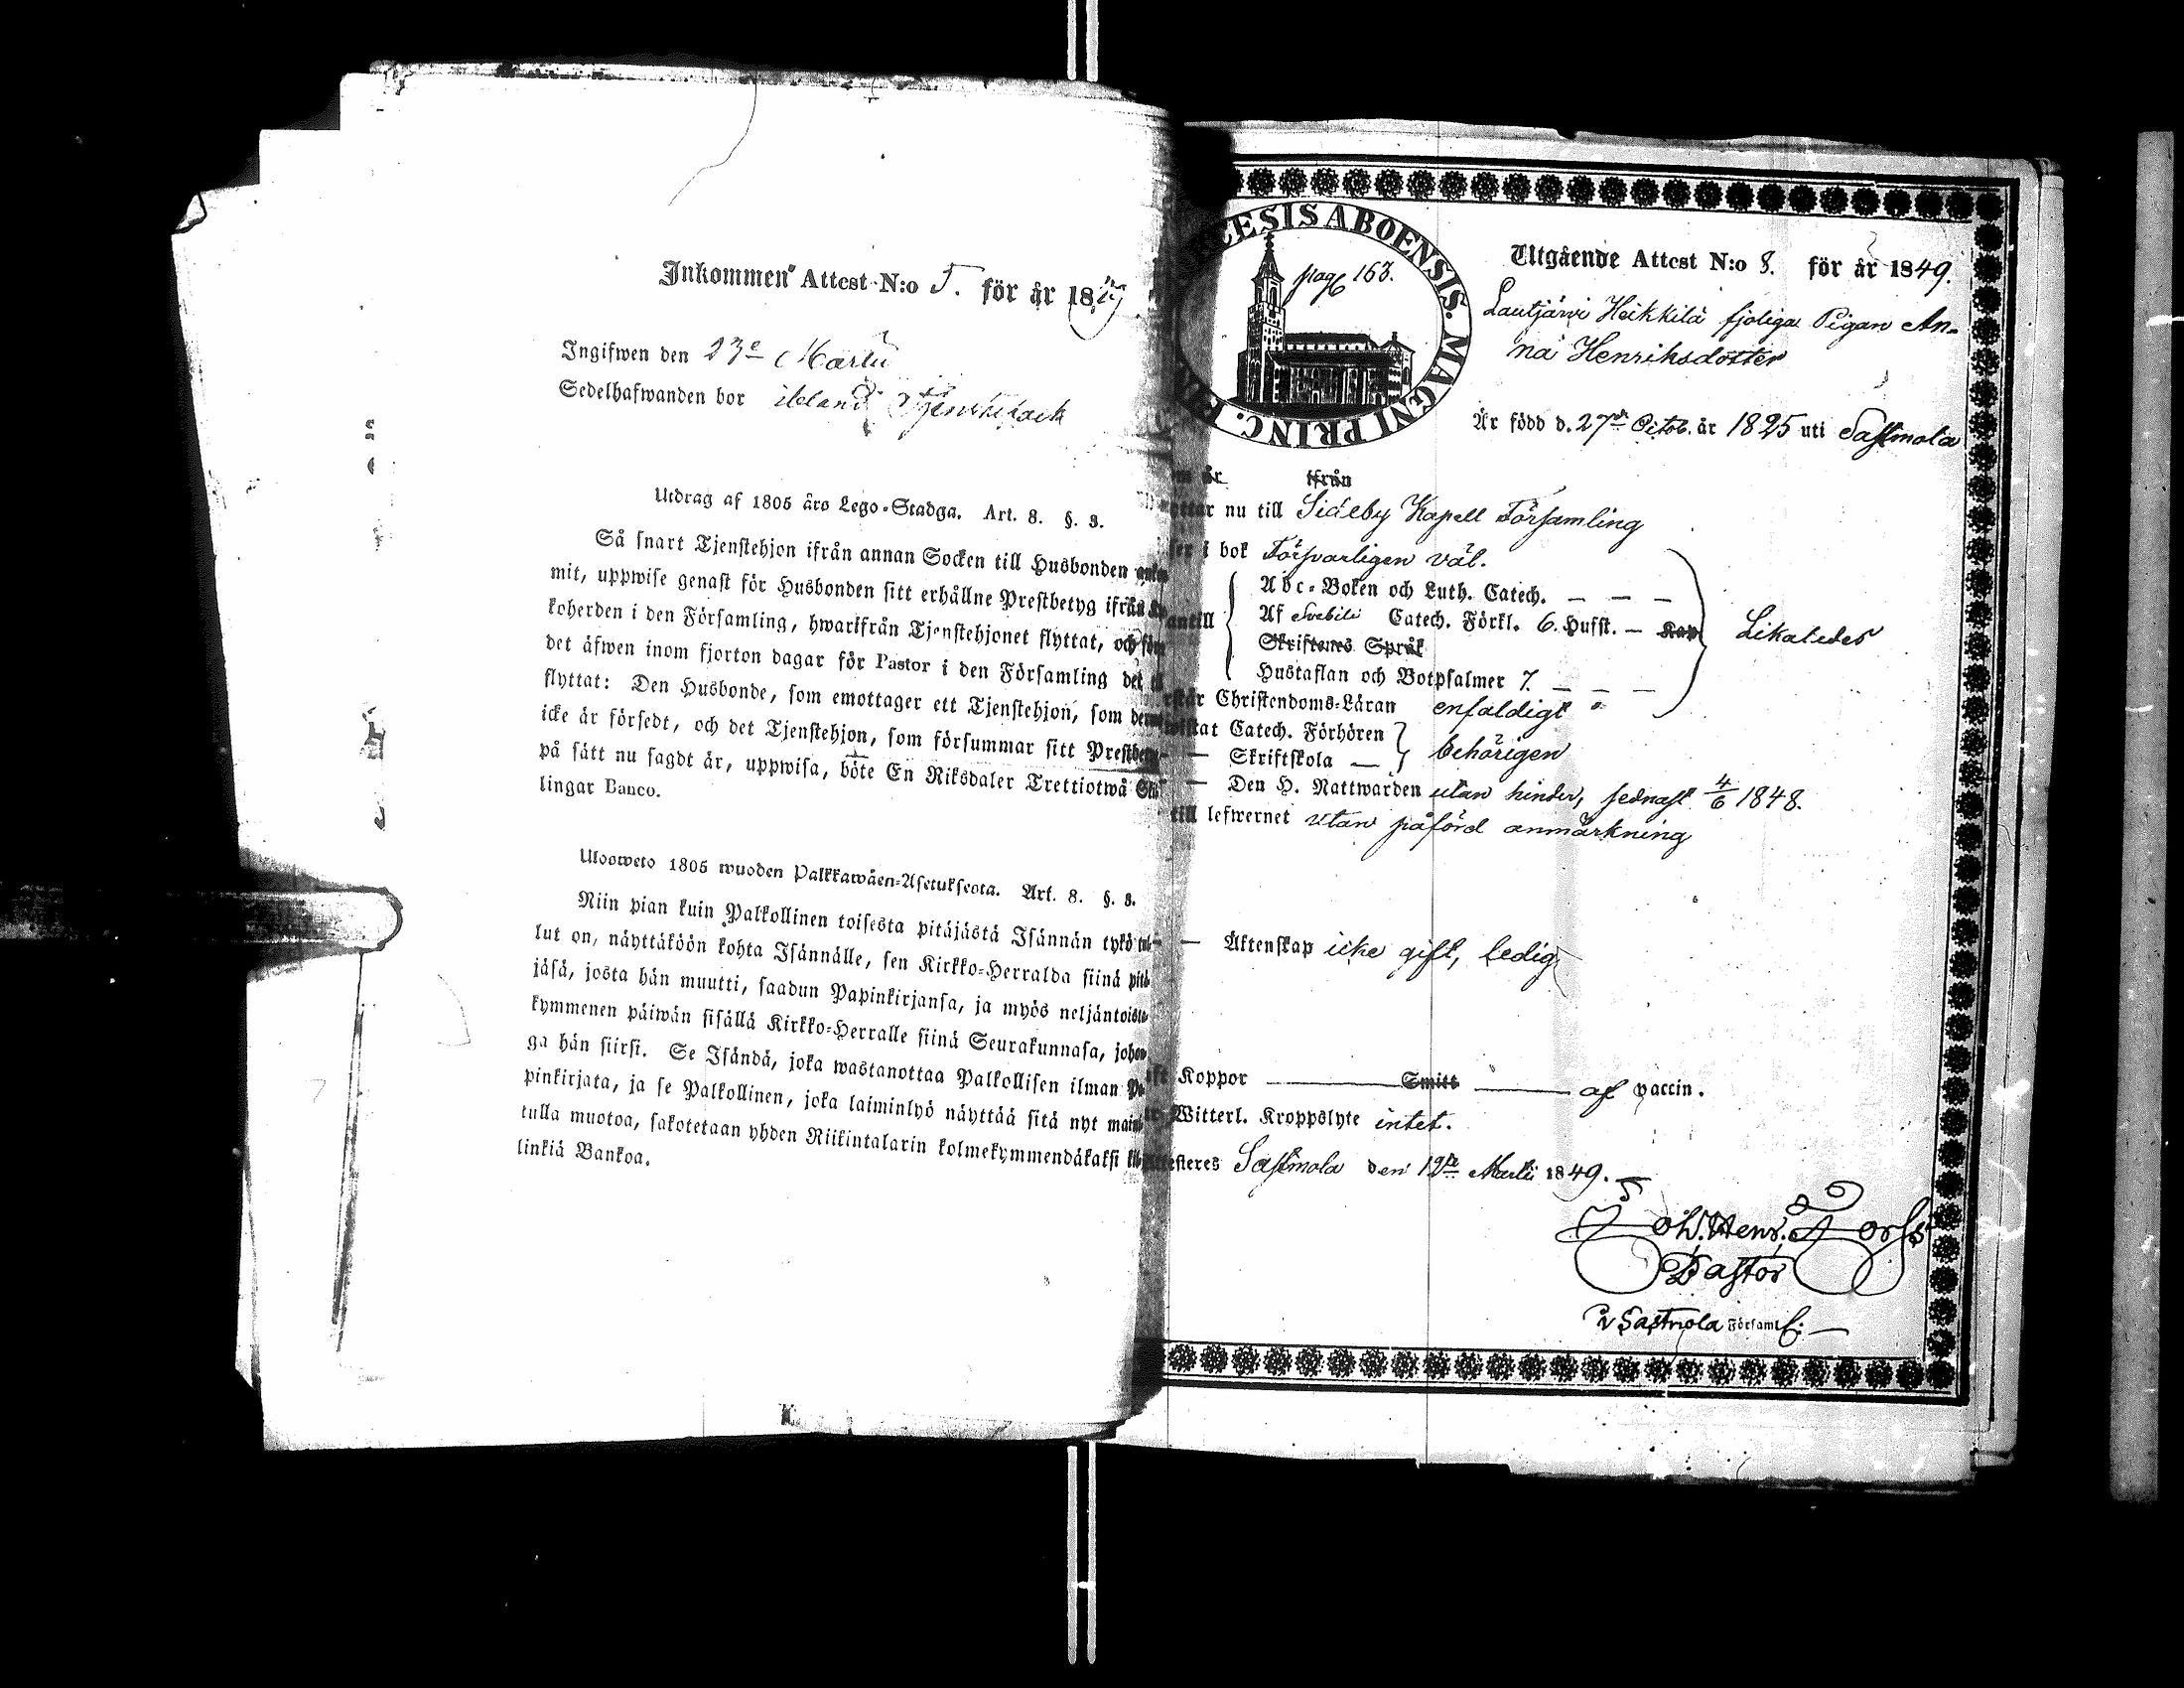 Inkommen Attest N:o 5. för år 1849
Ingifwen den 23e Martii
Sedelhafwanden bor ibland Tjenstefolck
Utdrag af 1805 års Lego-Stadga. Art. 8. §. 3.
Så snart Tjenstehjon ifrån annan Socken till Husbonden
mit, uppwise genast för Husbonden sitt erhållne Prestbetyg ifrån
koherden i den Församling, hwarifrån Tjenstehjonet flyttat, och
det äfwen inom fjorton dagar för Pastor i den Församling det
flyttat: Den Husbonde, som emottager ett Tjenstehjon, som
icke är försedt, och det Tjenstehjon, som försummar sitt
på sätt nu sagdt är, uppwisa, böte En Riksdaler Trettiotwå
lingar Banco.
Ulosweto 1805 wuoden Palkkawäen-Asetuksesta. Art. 8. §. 3.
Niin pian kuin Palkollinen toisesta pitäjästä Isännän tykö
lut on, näyttäköön kohta Isännälle, sen Kirkko-Herralda siinä
jäsä, josta hän muutti, saadun Papinkirjansa, ja myös neljäntoista
kymmenen päiwän sisällä Kirkko-Herralle siinä Seurakunnasa,
ga hän siirsi. Se Isändä, joka wastanottaa Palkollisen ilman
pinkirjata, ja se Palkollinen, joka laiminlyö näyttää sitä nyt
tulla muotoa, sakotetaan yhden Riikintalarin kolmekymmendäkaksi
linkiä Bankoa.
ESIS ABOENSIS. MAGNI PRINC.
pag 163.
Utgående Attest N:o 8. för år 1849.
Lautjärvi Heikkilä fjoliga Pigan An-
na Henriksdotter
Är född d. 27de Octob. år 1825 uti Sastmola
år ifrån
nu till Sideby Kapell Församling
i bok Försvarligen väl.
Abc-Boken och Luth. Catech. — — —
antill Af Svebilii Catech. Förkl. 6. Hufst. — Kap Likaledes
Skriftenes Språk
Hustaflan och Botpsalmer 7. — — —
Christendoms-Läran enfaldigt
Catech. Förhören
— Skriftskola — behörigen
— Den H. Nattwarden utan hinder, sednast 4/6 1848.
till lefwernet utan påförd anmärkning
— Äktenskap icke gift, ledig
Koppor — Smitt — af vaccin.
Witterl. Kroppslyte intet.
Sastmola den 19de Martii 1849.
Joh. Henr.
Pastor
i Sastmola Församl: